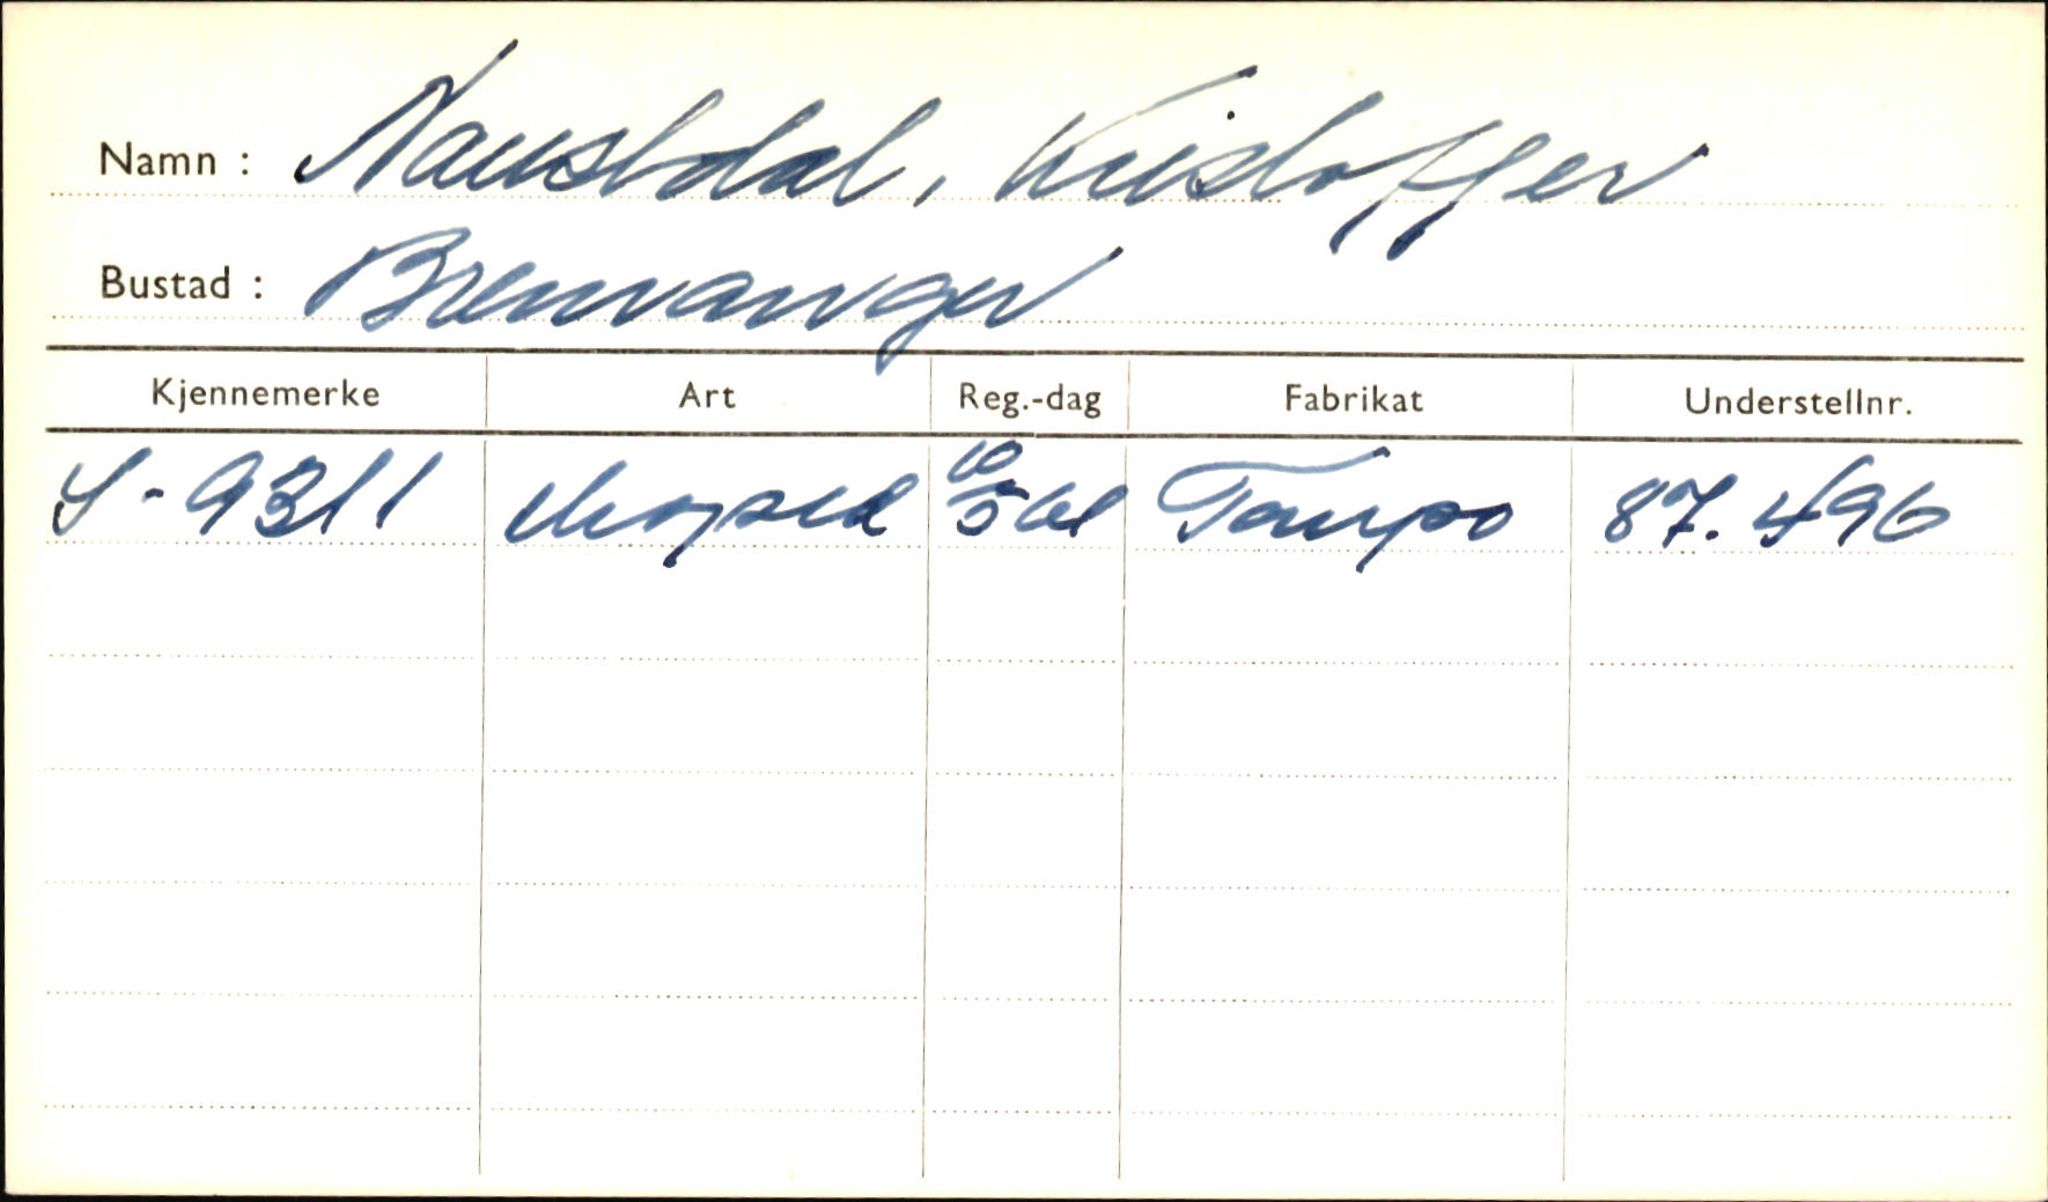 Namn : Naustdal, Kristoffer
Bustad : Bremanger
Kjennemerke Art Reg.-dag Fabrikat Understellnr.
S-9311 moped 10/5 61 Tempo 87.496